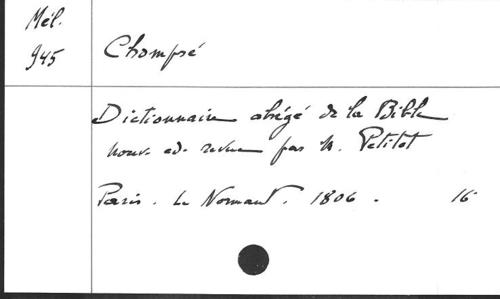 Mél.
945
Chompré
Dictionnaire abrégé de la Bible
nouv. ed. revue par M. Petitot
Paris. Le Normant. 1806. 16°